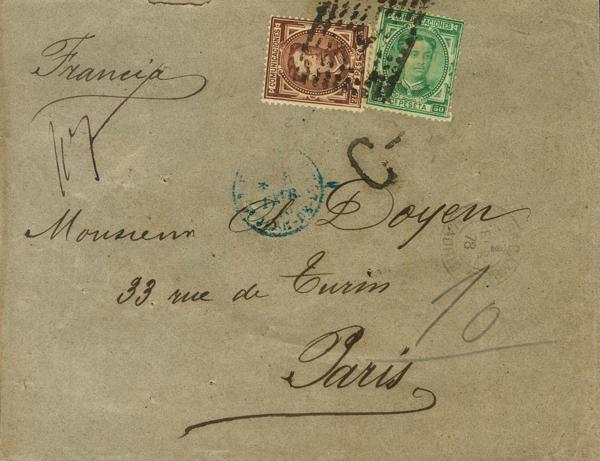 Francia
COMUNICACIONES
PESETA
COMUNICACIONES
PESETA
50
C
Monsieur Doyen
78
33 rue de Turin
10
Paris